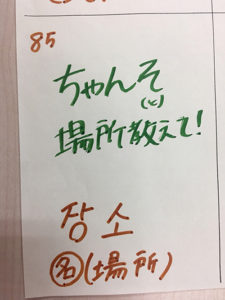 85
ちゃんそ
(と)
場所教えて!
장소
名(場所)